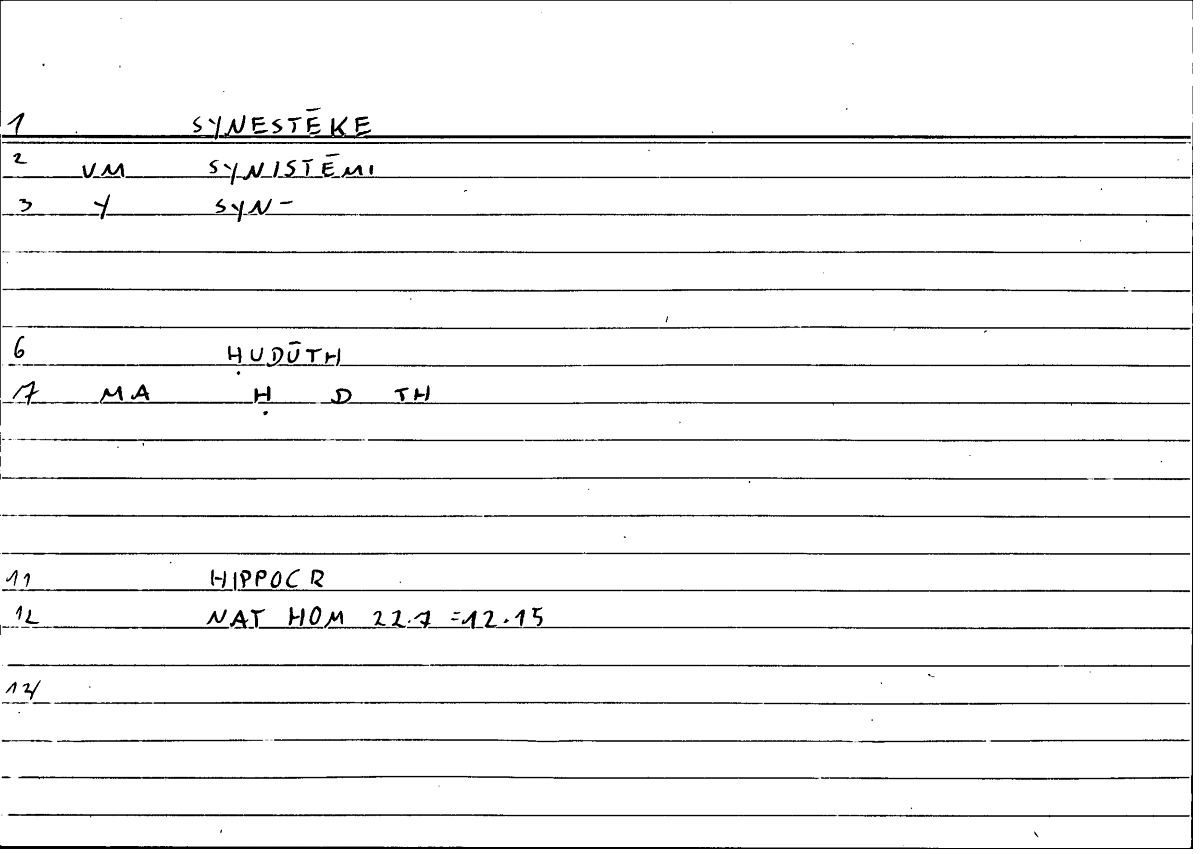 1 SYNESTĒKE
2 VM SYNISTĒMI
3 Y SYN-
6 ḤUDŪTH
7 MA Ḥ D TH
11 HIPPOCR
12 NAT HOM 22.7 =12.15